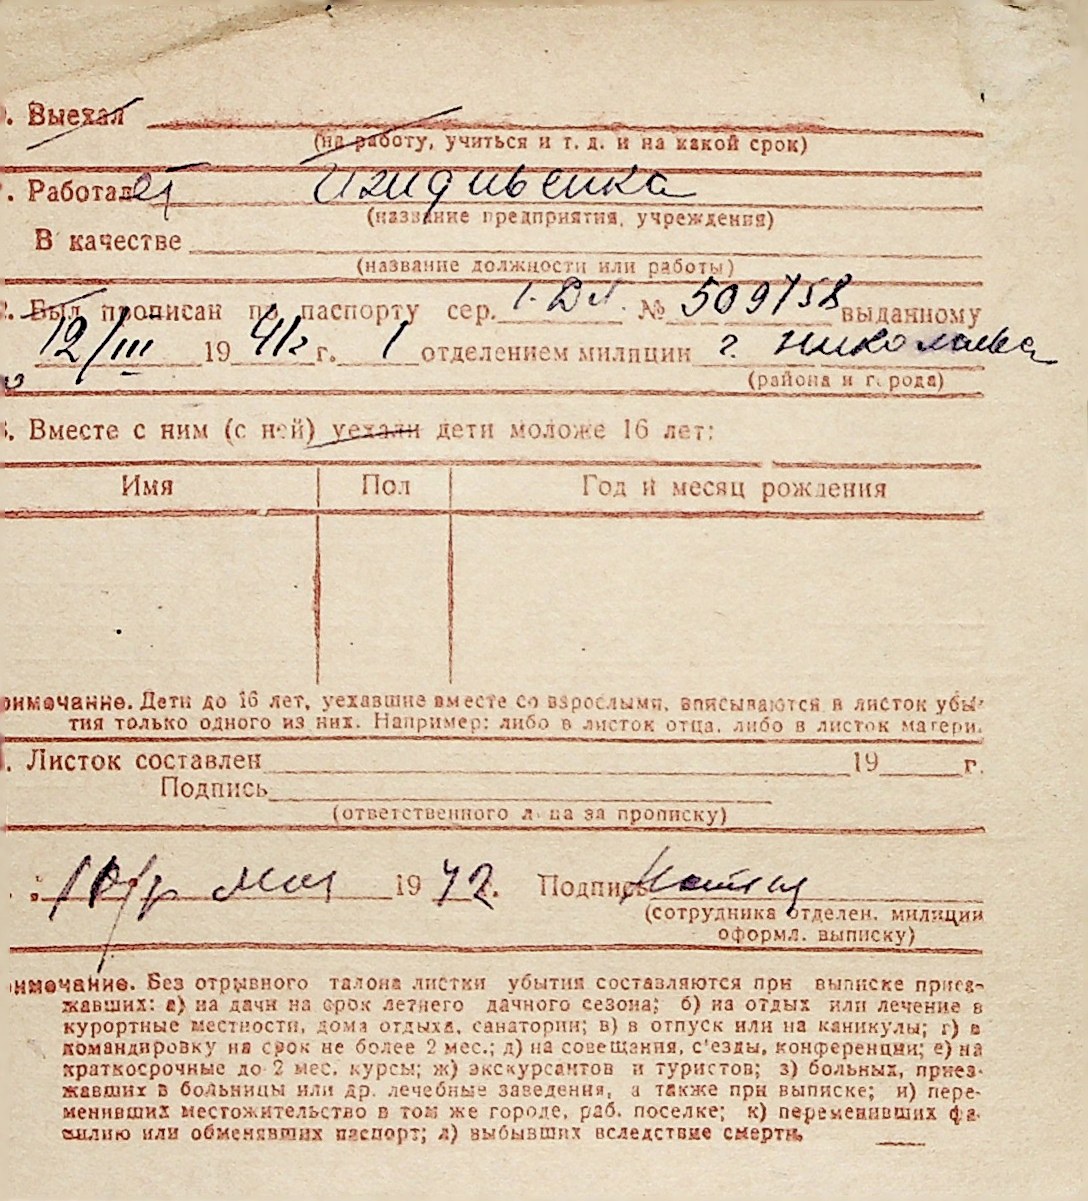 . Выехал
(на работу, учиться и т. д. и на какой срок)
. Работает Иждивенка
(название предприятия, учреждения)
В качестве
(название должности или работы)
. Был прописан по паспорту сер. № 509758 выданному
12/III 1941 г. 1 отделением милиции г. Николаева
(района и города)
. Вместе с ним (с ней) уехали дети моложе 16 лет:
Имя Пол Год и месяц рождения
римечание. Дети до 16 лет, уехавшие вместе со взрослыми, вписываются в листок убы-
тия только одного из них. Например: либо в листок отца, либо в листок матери.
. Листок составлен 19 г.
Подпись
(ответственного лица за прописку)
мая 1942. Подпись
(сотрудника отделен. милиции
оформл. выписку)
имечание. Без отрывного талона листки убытия составляются при выписке приез-
жавших: а) на дачи на срок летнего дачного сезона; б) на отдых или лечение в
курортные местности, дома отдыха, санатории; в) в отпуск или на каникулы; г) в
командировку на срок не более 2 мес.; д) на совещания, с'езды, конференции; е) на
краткосрочные до 2 мес. курсы; ж) экскурсантов и туристов; з) больных, приез-
жавших в больницы или др. лечебные заведения, а также при выписке; и) пере-
менивших местожительство в том же городе, раб. поселке; к) переменивших фа-
милию или обменявших паспорт; л) выбывших вследствие смерти.